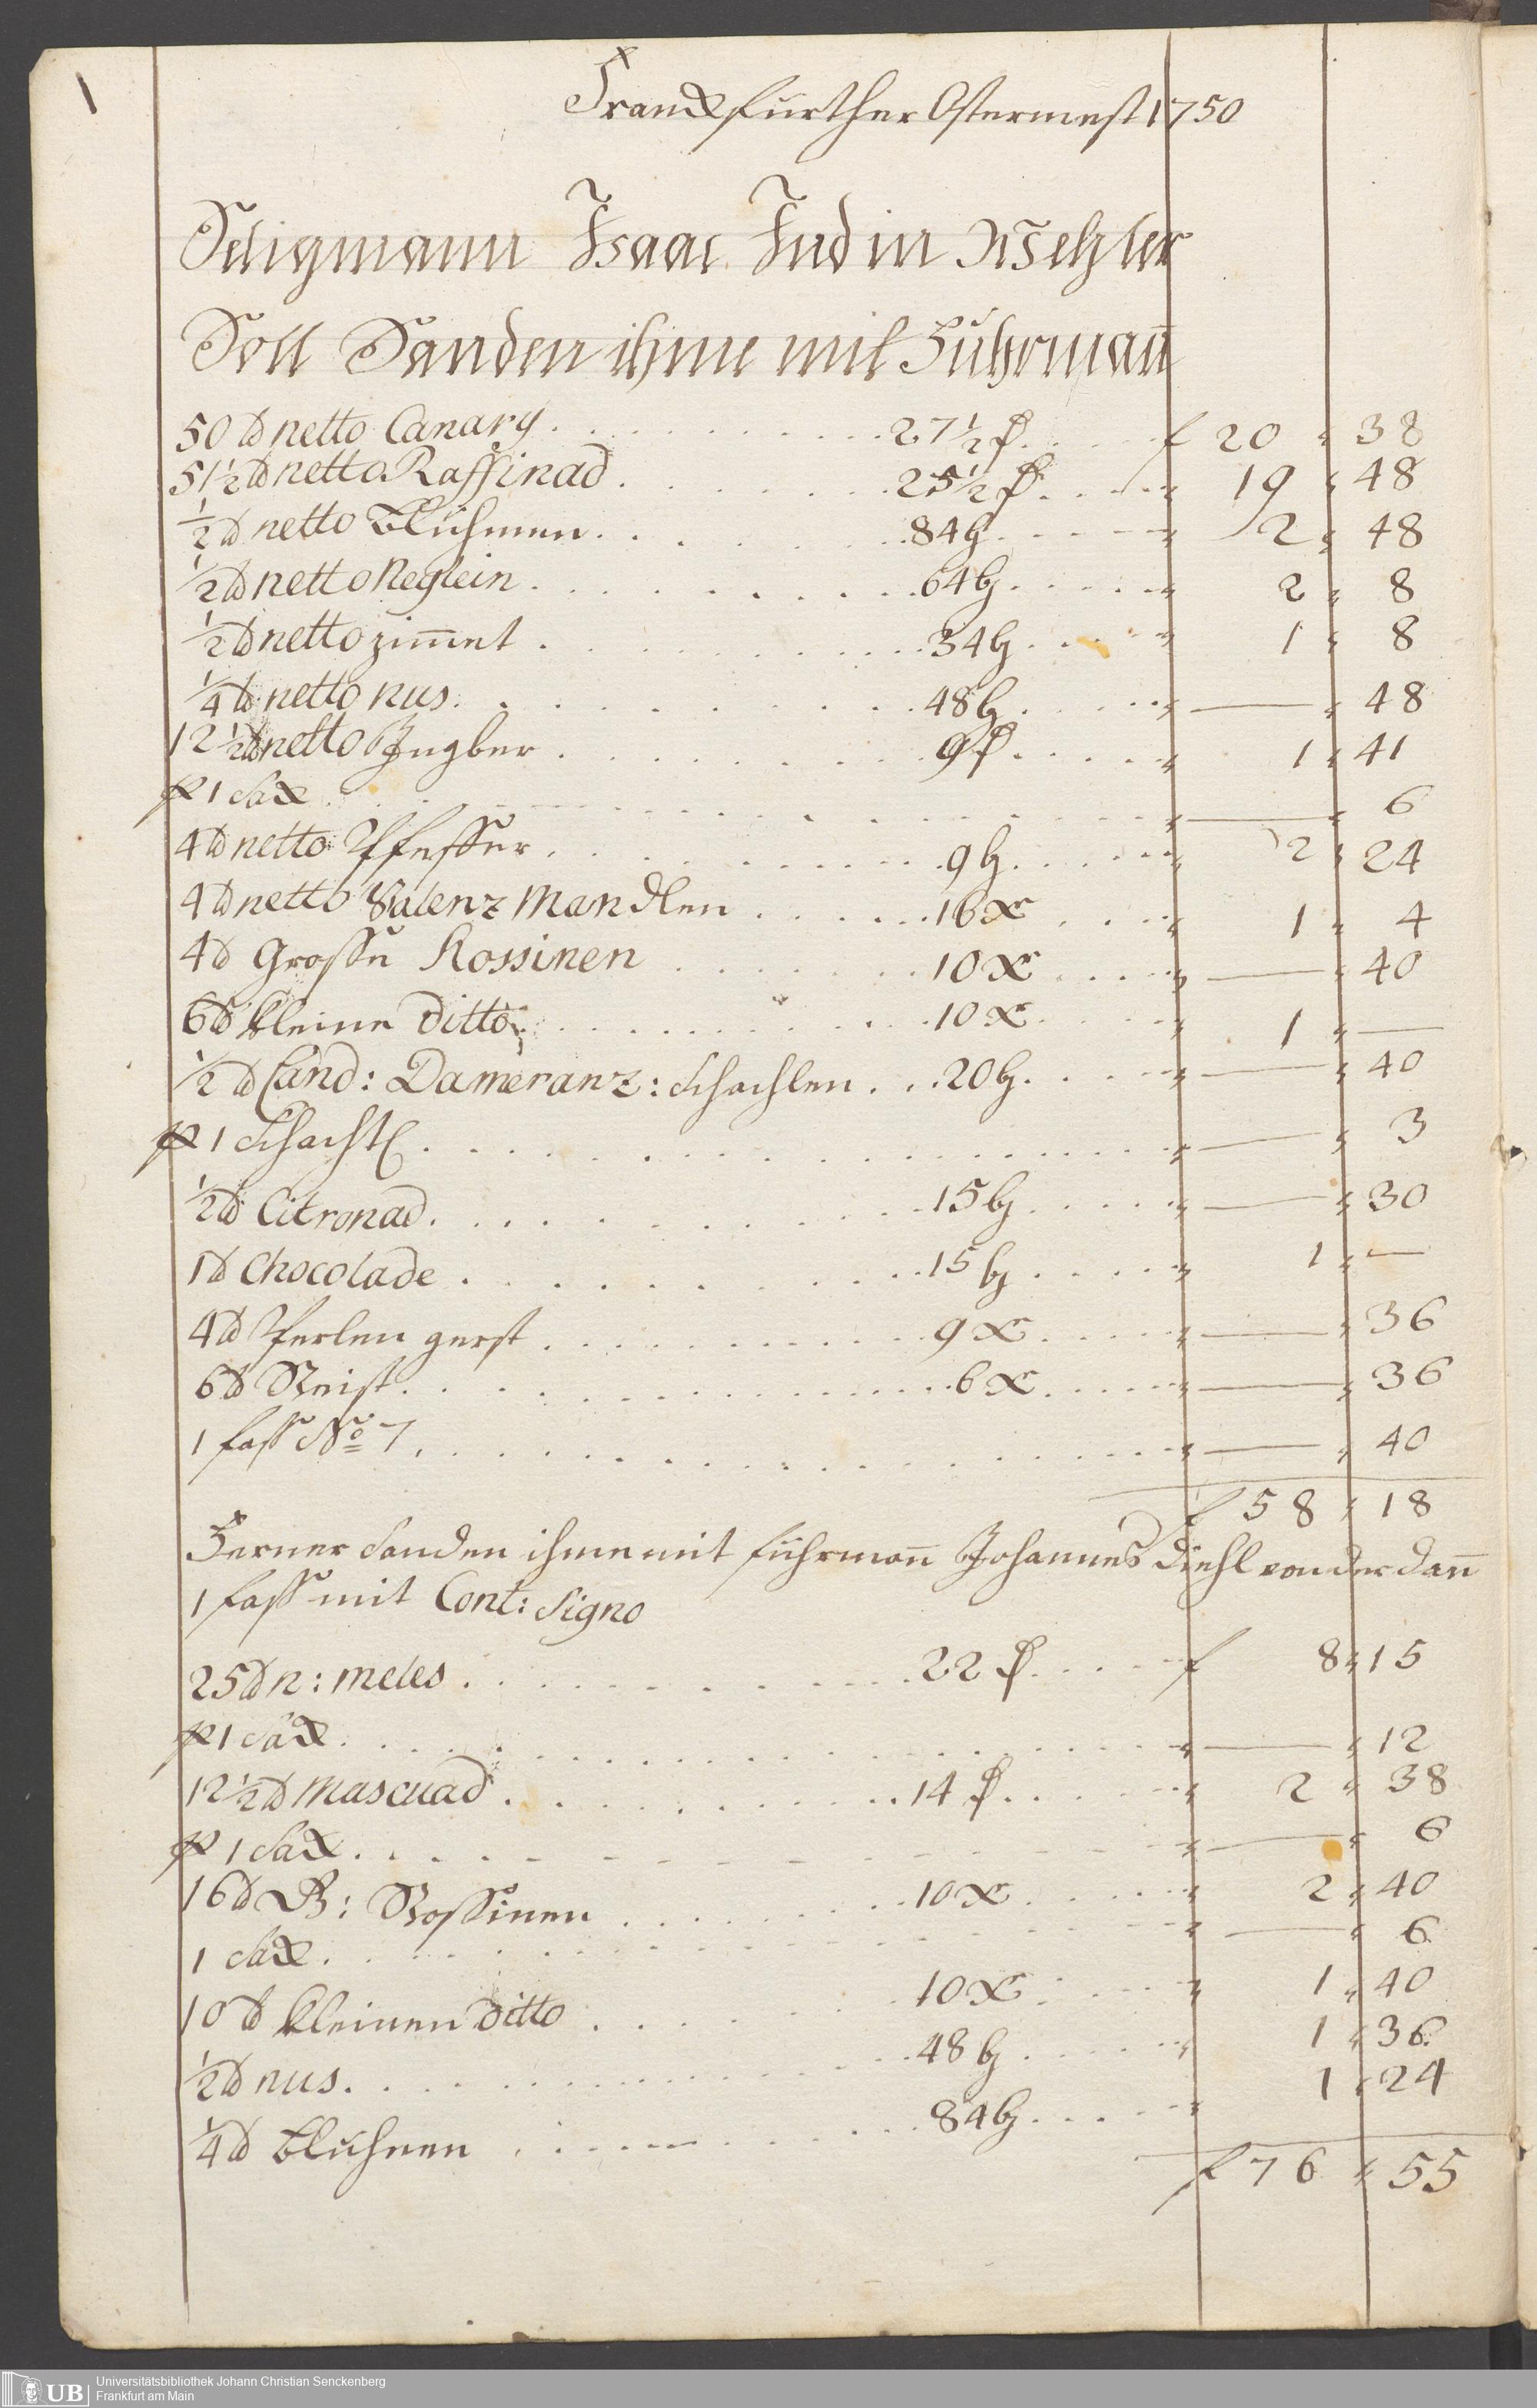 1
Franckfurther Ostermess 1750
Seligmann Isaac Jud in Wetzler
Soll Sanden ihme mit Fuhrman̄
50 ℔ netto Canary . . . 27½ ₰ . . . f 20 " 38
51½ ℔ netto Raffinad . . . 25½ ₰ . . . " 19 " 48
½ ℔ netto Bluhmen . . . 84 b . . . " 2 " 48
½ ℔ netto Neglein . . . 64 b . . . " 2 " 8
½ ℔ netto zim̄et . . . 34 b . . . " 1 " 8
¼ ℔ netto nus . . . 48 b . . . " — " 48
12½ ℔ netto Jngber . . . 9 ₰ . . . " 1 " 41
p 1 Sack . . . " — " 6
4 ℔ netto Pfeffer . . . 9 b . . . " 2 " 24
4 ℔ netto Valenz Mandlen . . . 16 x . . . " 1 " 4
4 ℔ Grosse Rossinen . . . 10 x . . . " — " 40
6 ℔ kleine Ditto . . . 10 x . . . " 1 " —
½ ℔ Cand: Dameranz: Schachlen . . 20 b . . . " — " 40
p 1 Schachtl . . . " — " 3
½ ℔ Citronad . . . 15 b . . . " — " 30
1 ℔ Chocolade . . . 15 b . . . " 1 " —
4 ℔ Perlen gerst . . . 9 x . . . " — " 36
6 ℔ Reist . . . 6 x . . . " — " 36
1 fass No 7 . . . " — " 40
f 58 " 18
Ferner Sanden ihme mit fuhrman̄ Johannes Diehl von der dan̄
1 fass mit Cont: Signo
25 ℔ n: meles . . . 22 ₰ . . . f 8 " 15
p 1 Sack . . . " — " 12
12½ ℔ Mascuad . . . 14 ₰ . . . " 2 " 38
p 1 Sack . . . " — " 6
16 ℔ G: Rossinen . . . 10 x . . . " 2 " 40
1 Sack . . . " — " 6
10 ℔ kleinen Ditto . . . 10 x . . . " 1 " 40
½ ℔ nus . . . 48 b . . . " 1 " 36
¼ ℔ Bluhmen . . . 84 b . . . " 1 " 24
f 76 " 55
UB
Universitätsbibliothek Johann Christian Senckenberg
Frankfurt am Main